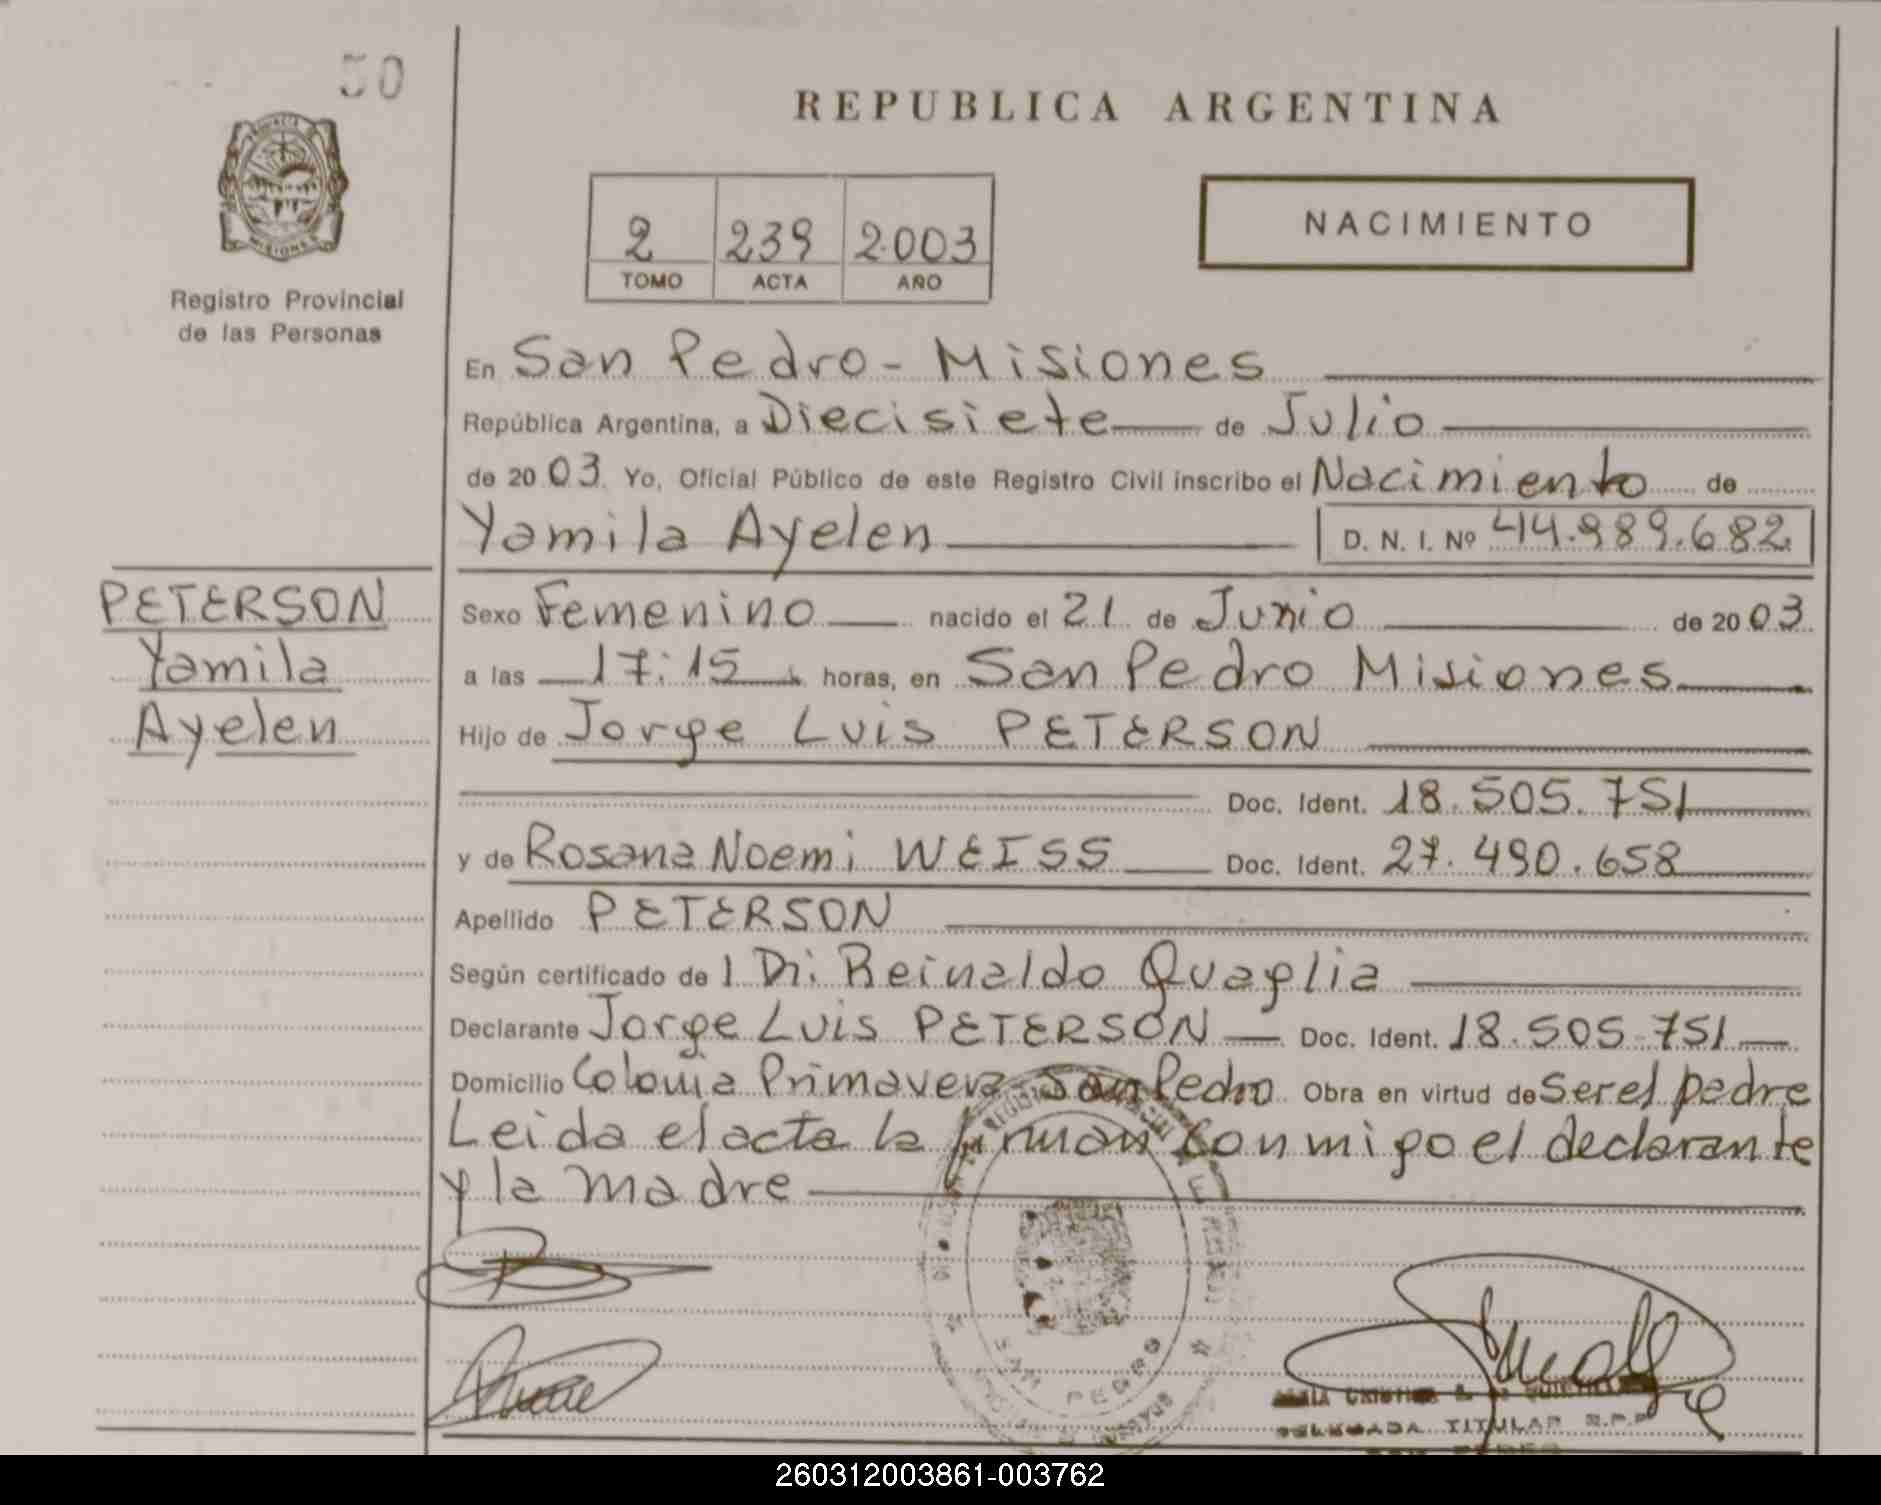 50
REPUBLICA ARGENTINA
PROVINCIA
MISIONES
Registro Provincial
de las Personas
2 239 2003
TOMO ACTA AÑO
NACIMIENTO
En San Pedro - Misiones
República Argentina, a Diecisiete de Julio
de 2003. Yo, Oficial Público de este Registro Civil inscribo el Nacimiento de
Yamila Ayelen D. N. I. Nº 44.989.682
PETERSON
Yamila
Ayelen
Sexo Femenino nacido el 21 de Junio de 2003
a las 17:15 horas, en San Pedro Misiones
Hijo de Jorge Luis PETERSON
Doc. Ident. 18.505.751
y de Rosana Noemi WEISS Doc. Ident. 27.490.658
Apellido PETERSON
Según certificado de l Dr: Reinaldo Quaglia
Declarante Jorge Luis PETERSON Doc. Ident. 18.505.751
Domicilio Colonia Primavera San Pedro Obra en virtud de Ser el padre
Leida el acta la firman conmigo el declarante
y la madre
SAN PEDRO
DELEGADA TITULAR R.P.P
260312003861-003762